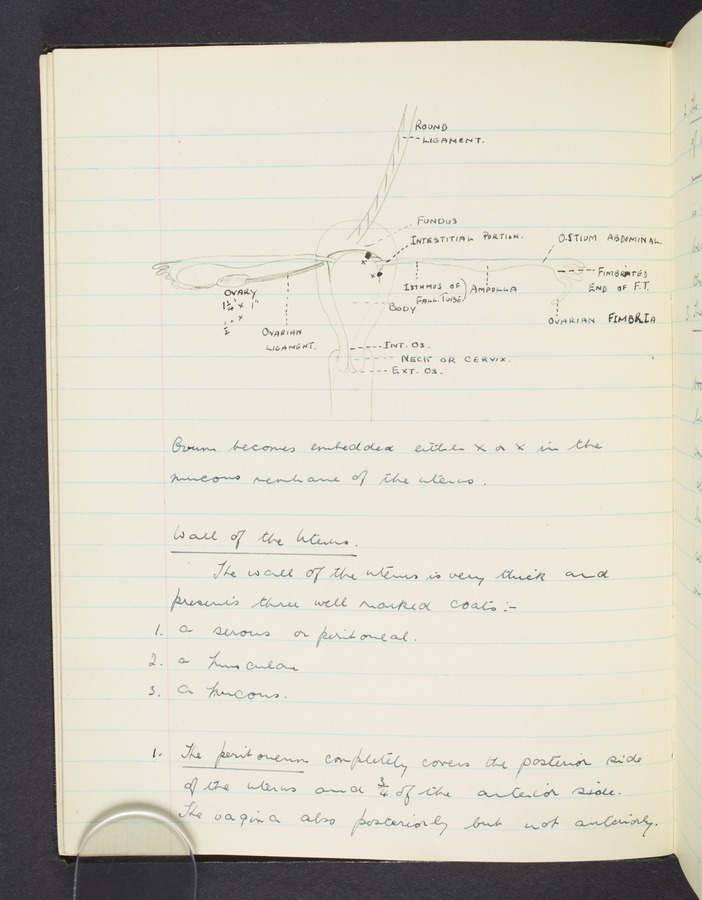 ROUND
LIGAMENT.
FUNDUS
INTESTITIAL PORTION.
OSTIUM ABDOMINAL.
FIMBRIATED
END OF F.T.
ISTHMUS OF
FALL. TUBE.
AMPULLA
OVARY
1½" x 1"
x
½"
BODY
OVARIAN FIMBRIA
OVARIAN
LIGAMENT.
INT. OS.
NECK OR CERVIX.
EXT. OS.
Ovum becomes embedded either x or x in the
mucous membrane of the uterus.
Wall of the Uterus.
The wall of the uterus is very thick and
presents three well marked coats :-
1. a serous or peritoneal.
2. a muscular
3. a mucous.
1. The peritoneum completely covers the posterior side
of the uterus and ¾ of the anterior side.
The vagina also posteriorly but not anteriorly.